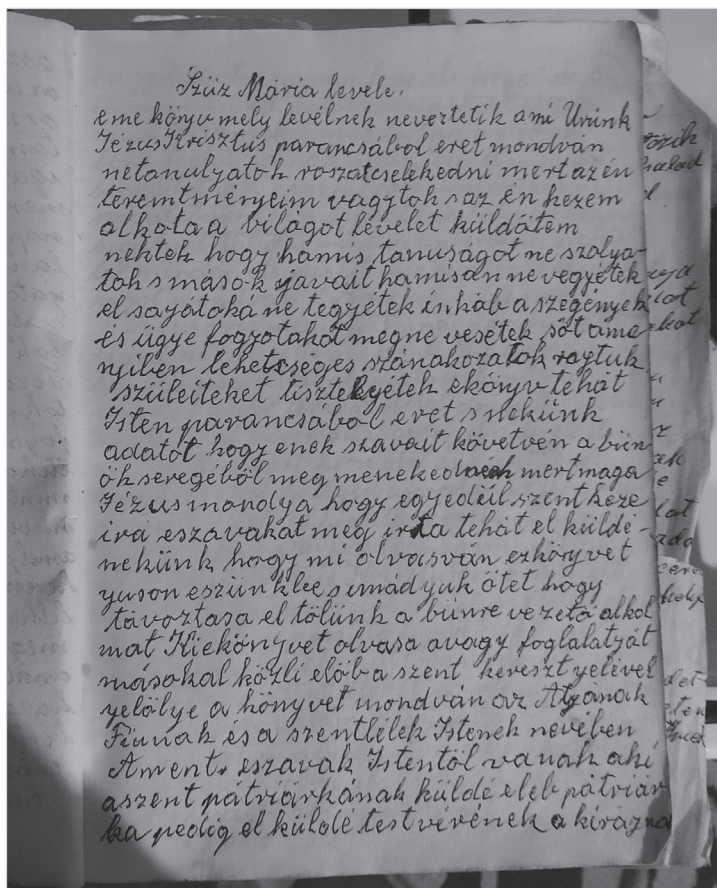 Szüz Mária levele.
eme könyv mely levélnek neveztetik ami Urunk
Jézus Krisztus parancsábol eret mondván
netanulyatok roszatcselekedni mert az én
teremtményeim vagytok s az én kezem
alkota a világot levelet küldöttem
nektek hogy hamis tanuságot ne szolya-
tok s mások javait hamisan ne vegyétek
el sajátoká ne tegyétek inkáb a szegények
és ügye fogyotakot megne vesétek sőt ame
nyiben lehetséges szánakozatok rajtuk
szüleiteket tisztelyétek ekönyv tehát
Isten parancsábol eret s nekünk
adatot hogy enek szavait követvén a bün
ök seregéböl meg menekednénk mert maga
Jézus mondya hogy egyedül szent keze
irá eszavakat meg irta tehát el külde-
nekünk hogy mi olvasván ezkönyvet
yuson eszünkbe s imádyuk ötet hogy
távoztasa el tölünk a bünre vezető alkol
mat Kiekönyvet olvasa avagy foglalatját
másokal közli elöb a szent kereszt yelével
yelölye a könyvet mondván az Atyának
Fiunak és a szentlélek Istenek nevében
Ament. eszavak Istentöl vanak aki
aszent pátriárkának küldé eleb pátriár
ka pedig el küldé testvérének a királyna